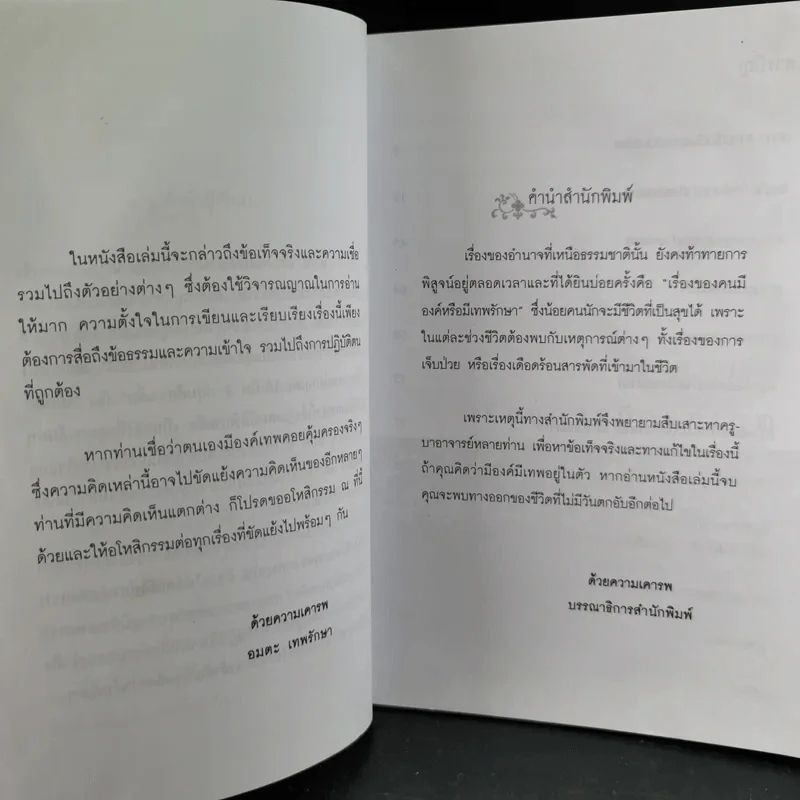 ในหนังสือเล่มนี้จะกล่าวถึงข้อเท็จจริงและความเชื่อ
รวมไปถึงตัวอย่างต่างๆ ซึ่งต้องใช้วิจารณญาณในการอ่าน
ให้มาก ความตั้งใจในการเขียนและเรียบเรียงเรื่องนี้เพียง
ต้องการสื่อถึงข้อธรรมและความเข้าใจ รวมไปถึงการปฏิบัติตน
ที่ถูกต้อง
หากท่านเชื่อว่าตนเองมีองค์เทพคอยคุ้มครองจริงๆ
ซึ่งความคิดเหล่านี้อาจไปขัดแย้งความคิดเห็นของอีกหลายๆ
ท่านที่มีความคิดเห็นแตกต่าง ก็โปรดขออโหสิกรรม ณ ที่นี้
ด้วยและให้อโหสิกรรมต่อทุกเรื่องที่ขัดแย้งไปพร้อมๆ กัน
ด้วยความเคารพ
อมตะ เทพรักษา
คำนำสำนักพิมพ์
เรื่องของอำนาจที่เหนือธรรมชาตินั้น ยังคงท้าทายการ
พิสูจน์อยู่ตลอดเวลาและที่ได้ยินบ่อยครั้งคือ "เรื่องของคนมี
องค์หรือมีเทพรักษา" ซึ่งน้อยคนนักจะมีชีวิตที่เป็นสุขได้ เพราะ
ในแต่ละช่วงชีวิตต้องพบกับเหตุการณ์ต่างๆ ทั้งเรื่องของการ
เจ็บป่วย หรือเรื่องเดือดร้อนสารพัดที่เข้ามาในชีวิต
เพราะเหตุนี้ทางสำนักพิมพ์จึงพยายามสืบเสาะหาครู-
บาอาจารย์หลายท่าน เพื่อหาข้อเท็จจริงและทางแก้ไขในเรื่องนี้
ถ้าคุณคิดว่ามีองค์มีเทพอยู่ในตัว หากอ่านหนังสือเล่มนี้จบ
คุณจะพบทางออกของชีวิตที่ไม่มีวันตกอับอีกต่อไป
ด้วยความเคารพ
บรรณาธิการสำนักพิมพ์